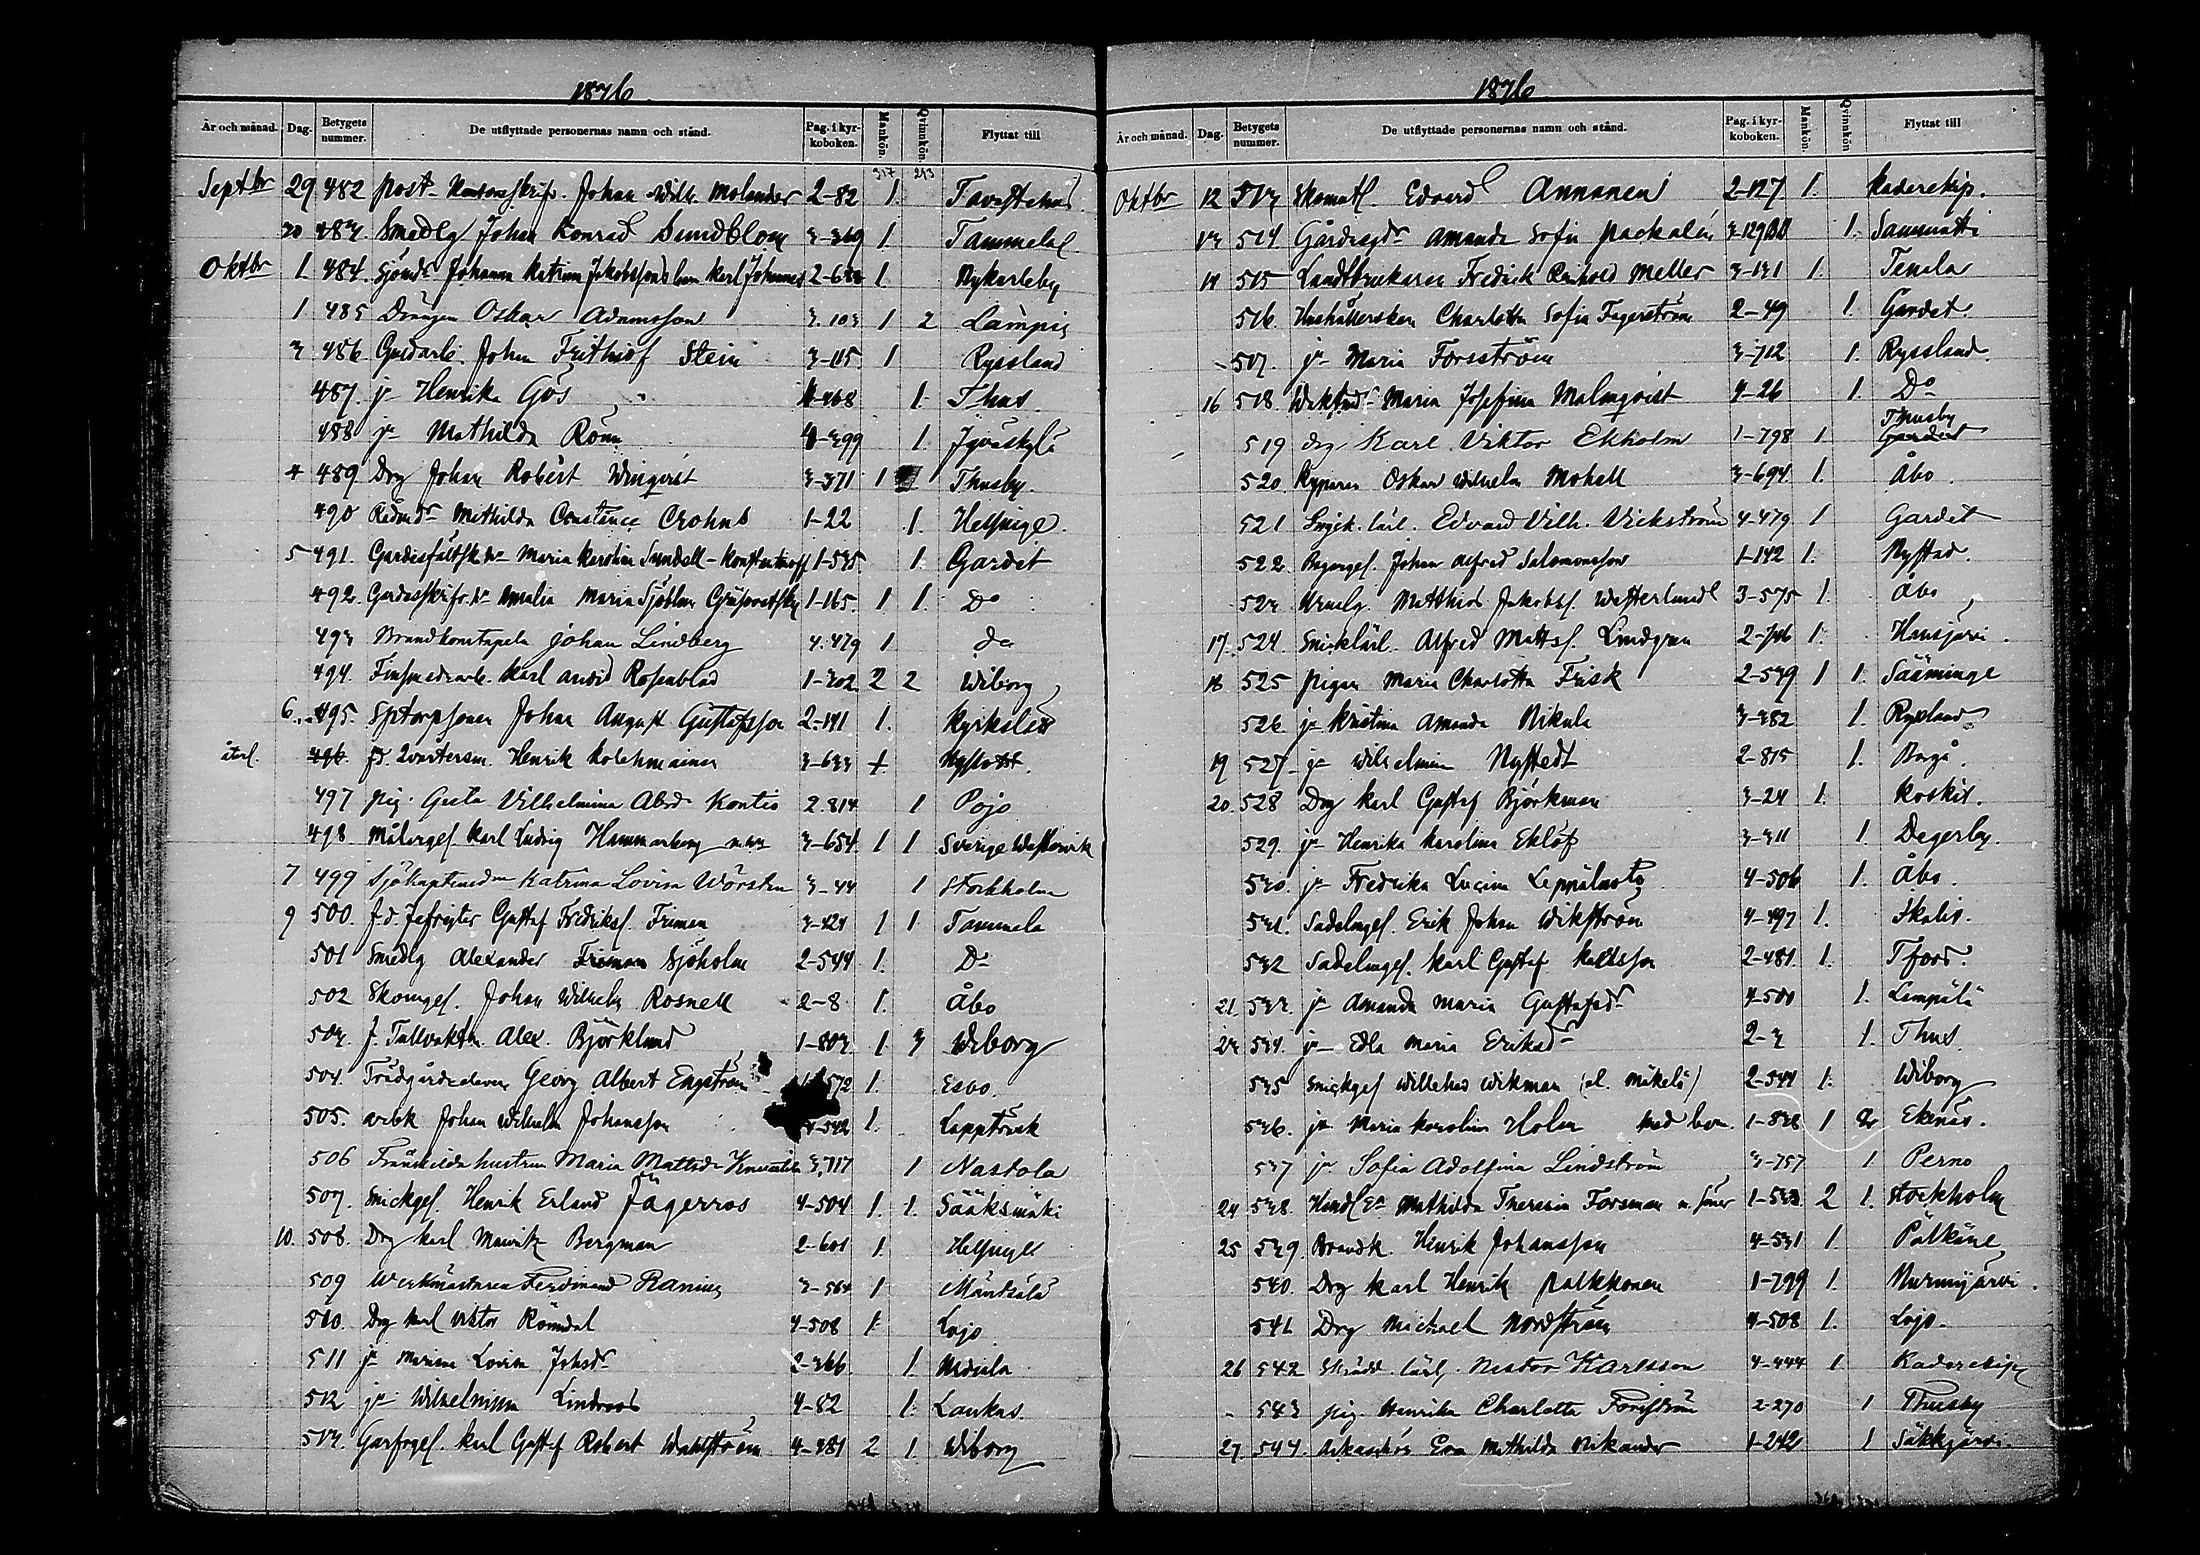 1876.
År och månad. Dag. Betygets nummer. De utflyttade personernas namn och stånd. Pag. i kyrkoboken. Mankön. Qvinnkön. Flyttat till
317 243
Septbr 29 482 post- Johan Wilh. Molander 2-82 1. Tavastehus
30 483. Smedlg Johan Konrad Sundblom 3-369 1. Tammela
Oktbr 1. 484. Johanna Katrina Jakobssons barn Karl Johannes 1. Nykarleby
1 485 Drängen Oskar Adamsson 3.103 1 2 Lampis
3 486 Johan Frithiof Stein 3-115. 1 Ryssland
487. jr Henrika Gös 4-468 1. Thus.
488 jr Mathilda Rönn 4-399 1. Jyväskylä
4 489 Drg Johan Robert Winqvist 3-371 1 Thusby.
490 Mathilda Constance Crohns 1-22 1. Helsinge.
5 491. Maria Karolina Sundell-Konstantinoff 1-535. 1 Gardet
492. Amalia Maria Sjöblom 1-165. 1 1. Do
493 Brandkonstapeln Johan Lindberg 4.479 1 do
494. Karl Arvid Rosenblad 1-302 2 2 Wiborg
6. 495. Johan August Gustafsson 2-141 1. Kyrkslätt
återl. 496. Henrik Kolehmainen 3-633 1. Nyslott.
497 pig. Greta Vilhelmina Abrd Kontio 2.814 1 Pojo
498. Målarges. Karl Ludvig Hammarberg 3-654 1 1 Sverige Westervik
7 499 Sjökaptensdn Katrina Lovisa Wörsten 3-44 1 Stockholm
9 500. Gustaf Fredrikss. Friman 3-424 1 1 Tammela
501 Smedlg Alexander Friman Sjöholm 2-544 1. Do
502 Skomges. Johan Wilhelm Rosnell 2-8 1. Åbo
503. f. Tullvakten Alex. Björklund 1-803. 1 3 Wiborg
504. Trädgårdseleven Georg Albert Engström 572 1. Esbo.
505. arbk Johan Wilhelm Johansson 4-542 1. Lappträsk
506 Frånskilda hustrun Maria Mattsdr 3.717 1 Nastola
507. Snickges. Henrik Erland Jägerroos 4-504 1. 1. Sääksmäki
10. 508. Drg Karl Mauritz Bergman 2-601 1. Helsinge
509 Werkmästaren Ferdinand Ranin 3-564 1 Mäntsälä
510. Drg Karl Viktor Römdal 4-508 1. Lojo
511 jr Lovisa Johsdr 2-366. 1.
512 jr Wilhelmina Lindroos 4-82 1. Laukas.
513. Garfvges. Karl Gustaf Robert Wahlström 4-481 2 1. Wiborg
1876.
År och månad. Dag. Betygets nummer. De utflyttade personernas namn och stånd. Pag. i kyrkoboken. Mankön. Qvinnkön. Flyttat till
Oktbr 12 513 Edvard Annanen 2-127 1. kaderskp.
13 514 Gårdsegdr Amanda Sofia Packalén 1. Sammatti
14 515 Landtbrukaren Fredrik Reinhold Meller 3-131 1. Tenala
516. Hushållerskan Charlotta Sofia Fagerström 2-49 1. Gardet.
517. jr Maria Forsström 3-712 1. Ryssland.
16 518. Maria Josefina Malmqvist 4-26 1. Do
Thusby
519 drg Karl Viktor Ekholm 1-798 1 Gardet
520. Kyparen Oskar Wilhelm Mohell 3-694 1. Åbo.
521 Snick. lärl. Edvard Vilh. Vickström 4-479 1 Gardet
522. Bagarges. Johan Alfred Salomonsson 1-142 1. Nystad.
523. Matthias Jakobss. Westerlund 3-575 1. Åbo
17. 524. Snicklärl. Alfred Mattss. Lindgren 1. Hausjärvi.
18 525 pigan Maria Charlotta Frisk 2-539 1 1. Sääminge
526. jr Kristina Amanda Nikula 3-382 1. Ryssland
19 527 jr Wilhelmina Nystedt 2-815 1. Borgå.
20. 528 Drg Karl Gustaf Björkman 3-24 1. Koskis.
529. jr Henrika Karolina Eklöf 3-311 1. Degerby.
530. jr Fredrika Lucina 4-506 1. Åbo.
531. Sadelmges. Erik Johan Wikström 4-497 1.
532 Sadelmges. Karl Gustaf Karlsson 2-481. 1. Tfors.
21. 533. jr Amanda Maria Gustafsdr 4-500 1. Lempälä
23 534. jr Edla Maria Eriksdr 2-3 1. Thus
535 Snickges Willehad Wikman (el. Mäkelä) 2-544 1. Wiborg
536. jr Maria Karolina Holm med barn. 1-838 1 Ekenäs.
537 jr Sofia Adolfina Lindström 3-757 1 Perno
24 538. Mathilda Theresia Forsman 2 1. Stockholm
25 539. Brandk. Henrik Johansson 4-531 1. Pälkäne
540. Drg Karl Henrik Palkkonen 1-799 1. Nurmijärvi.
541. Drg Michael Nordström 4-508 1. Lojo.
26 542 Skrädd. lärl. Nestor Karlsson 4-444 1 Kaderskp
543 pig. Henrika Charlotta Forsström 2-270 1 Thusby
27. 544. Eva Mathilda Nikander 1-242 1 Säkkjärvi.